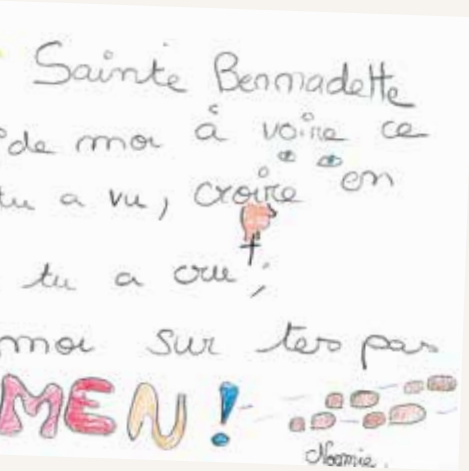 Sainte Bernadette
ide moi à voire ce
tu a vu, croire en
tu a cru,
moi sur tes pas
MEN!
Noémie.